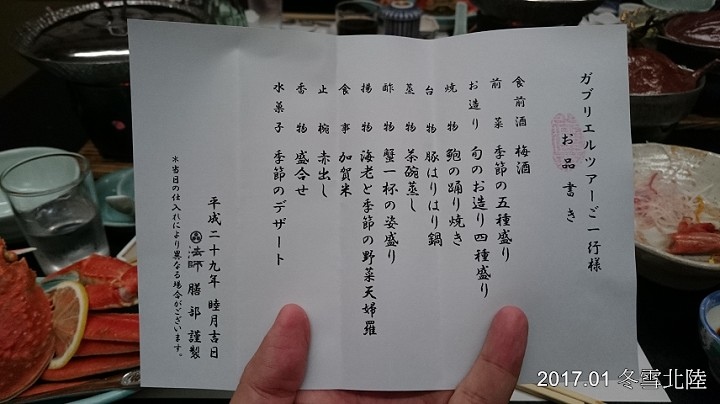 ガブリエルツアーご一行様
お品書き
食前酒 梅酒
前菜 季節の五種盛り
お造り 旬のお造り四種盛り
焼物 鮑の踊り焼き
台物 豚はりはり鍋
蒸物 茶碗蒸し
酢物 蟹一杯の姿盛り
揚物 海老と季節の野菜天婦羅
食事 加賀米
止椀 赤出し
香物 盛合せ
水菓子 季節のデザート
平成二十九年 睦月吉日
法師 膳部 謹製
*当日の仕入れにより異なる場合がございます。
2017.01 冬雪北陸